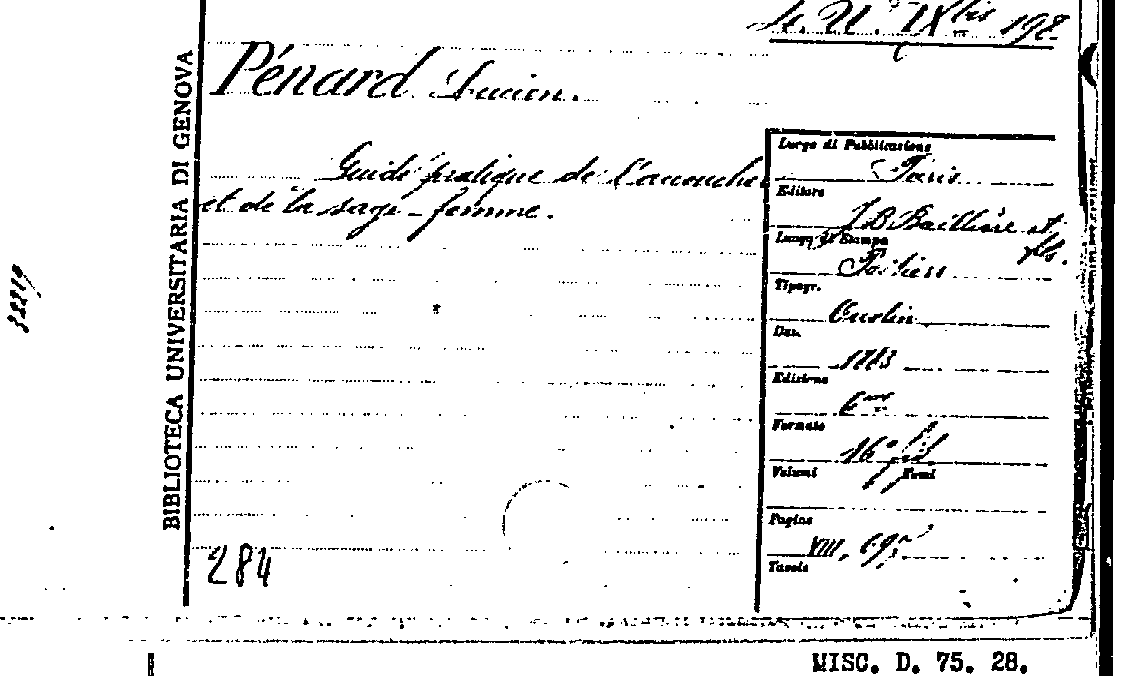 4. U. IX bis 198.
Pénard Lucien.
Guide pratique de l'accoucheur
et de la sage-femme.
BIBLIOTECA UNIVERSITARIA DI GENOVA
Luogo di Pubblicazione
Paris
Editore
J B Baillière et
fils.
Luogo di Stampa
Poitiers
Tipogr.
Oudin
Data
1883
Edizione
6eme
Formato
16° fig.
Volumi Tomi
Pagine
VIII, 695
Tavole
284
MISC. D. 75. 28.